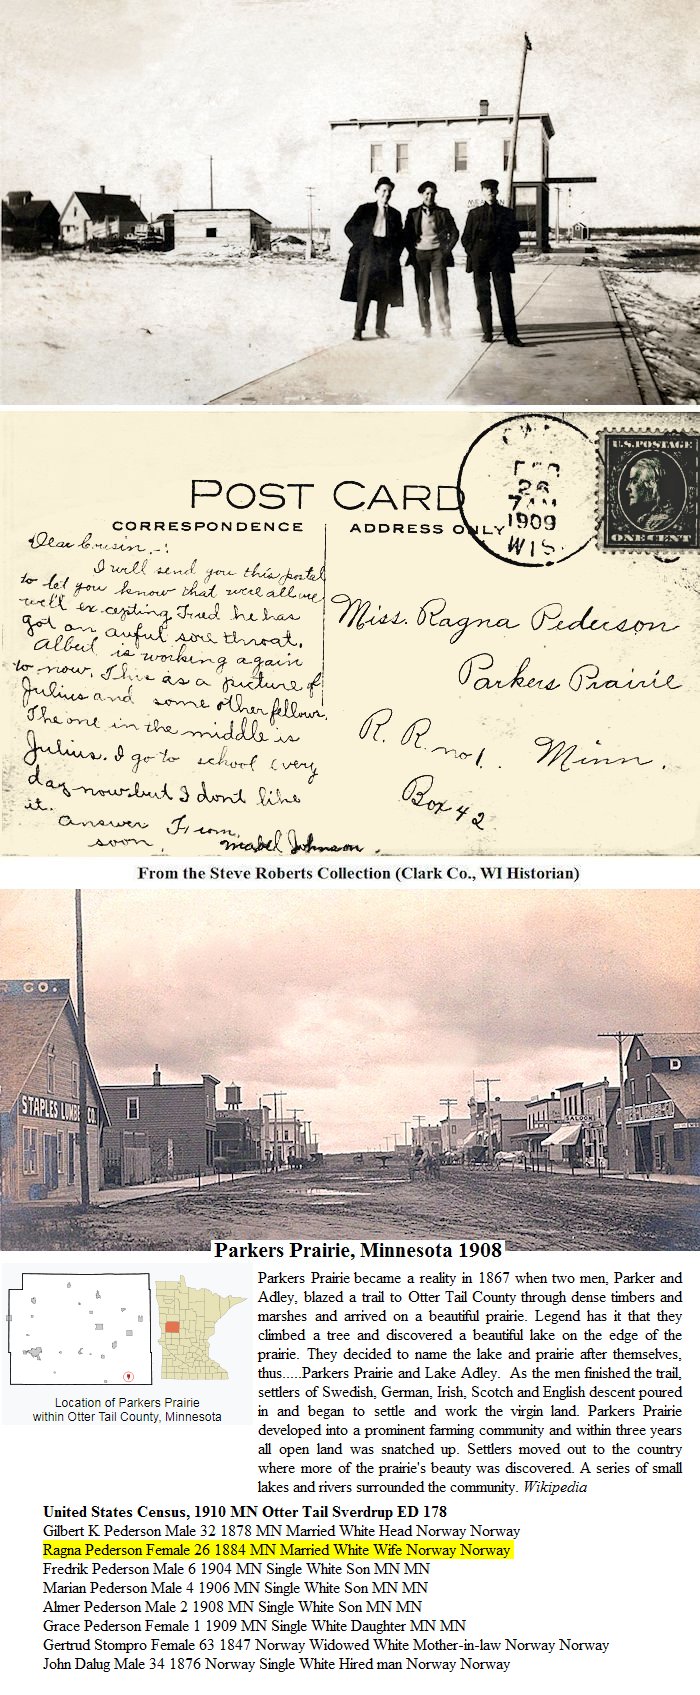 MEA
POST CARD
CORRESPONDENCE
ADDRESS ONLY
26
7 AM
1909
WIS.
U.S. POSTAGE
ONE CENT
Dear Cusin,-:
I will send you this postal
to let you know that were all
well excepting Fred he has
got an awful sore throat.
Albert is working again
to now. This is a picture of
Julius and some other fellows.
The one in the middle is
Julius. I go to school every
day now but I dont like
it.
Answer From,
soon. Mabel Johnson.
Miss. Ragna Pederson
Parkers Prairie
R. R. no 1. Minn.
Box 42
From the Steve Roberts Collection (Clark Co., WI Historian)
R CO.
STAPLES LUMBER CO.
SALOON
D
Parkers Prairie, Minnesota 1908
Location of Parkers Prairie
within Otter Tail County, Minnesota
Parkers Prairie became a reality in 1867 when two men, Parker and
Adley, blazed a trail to Otter Tail County through dense timbers and
marshes and arrived on a beautiful prairie. Legend has it that they
climbed a tree and discovered a beautiful lake on the edge of the
prairie. They decided to name the lake and prairie after themselves,
thus.....Parkers Prairie and Lake Adley. As the men finished the trail,
settlers of Swedish, German, Irish, Scotch and English descent poured
in and began to settle and work the virgin land. Parkers Prairie
developed into a prominent farming community and within three years
all open land was snatched up. Settlers moved out to the country
where more of the prairie's beauty was discovered. A series of small
lakes and rivers surrounded the community. Wikipedia
United States Census, 1910 MN Otter Tail Sverdrup ED 178
Gilbert K Pederson Male 32 1878 MN Married White Head Norway Norway
Ragna Pederson Female 26 1884 MN Married White Wife Norway Norway
Fredrik Pederson Male 6 1904 MN Single White Son MN MN
Marian Pederson Male 4 1906 MN Single White Son MN MN
Almer Pederson Male 2 1908 MN Single White Son MN MN
Grace Pederson Female 1 1909 MN Single White Daughter MN MN
Gertrud Stompro Female 63 1847 Norway Widowed White Mother-in-law Norway Norway
John Dalug Male 34 1876 Norway Single White Hired man Norway Norway